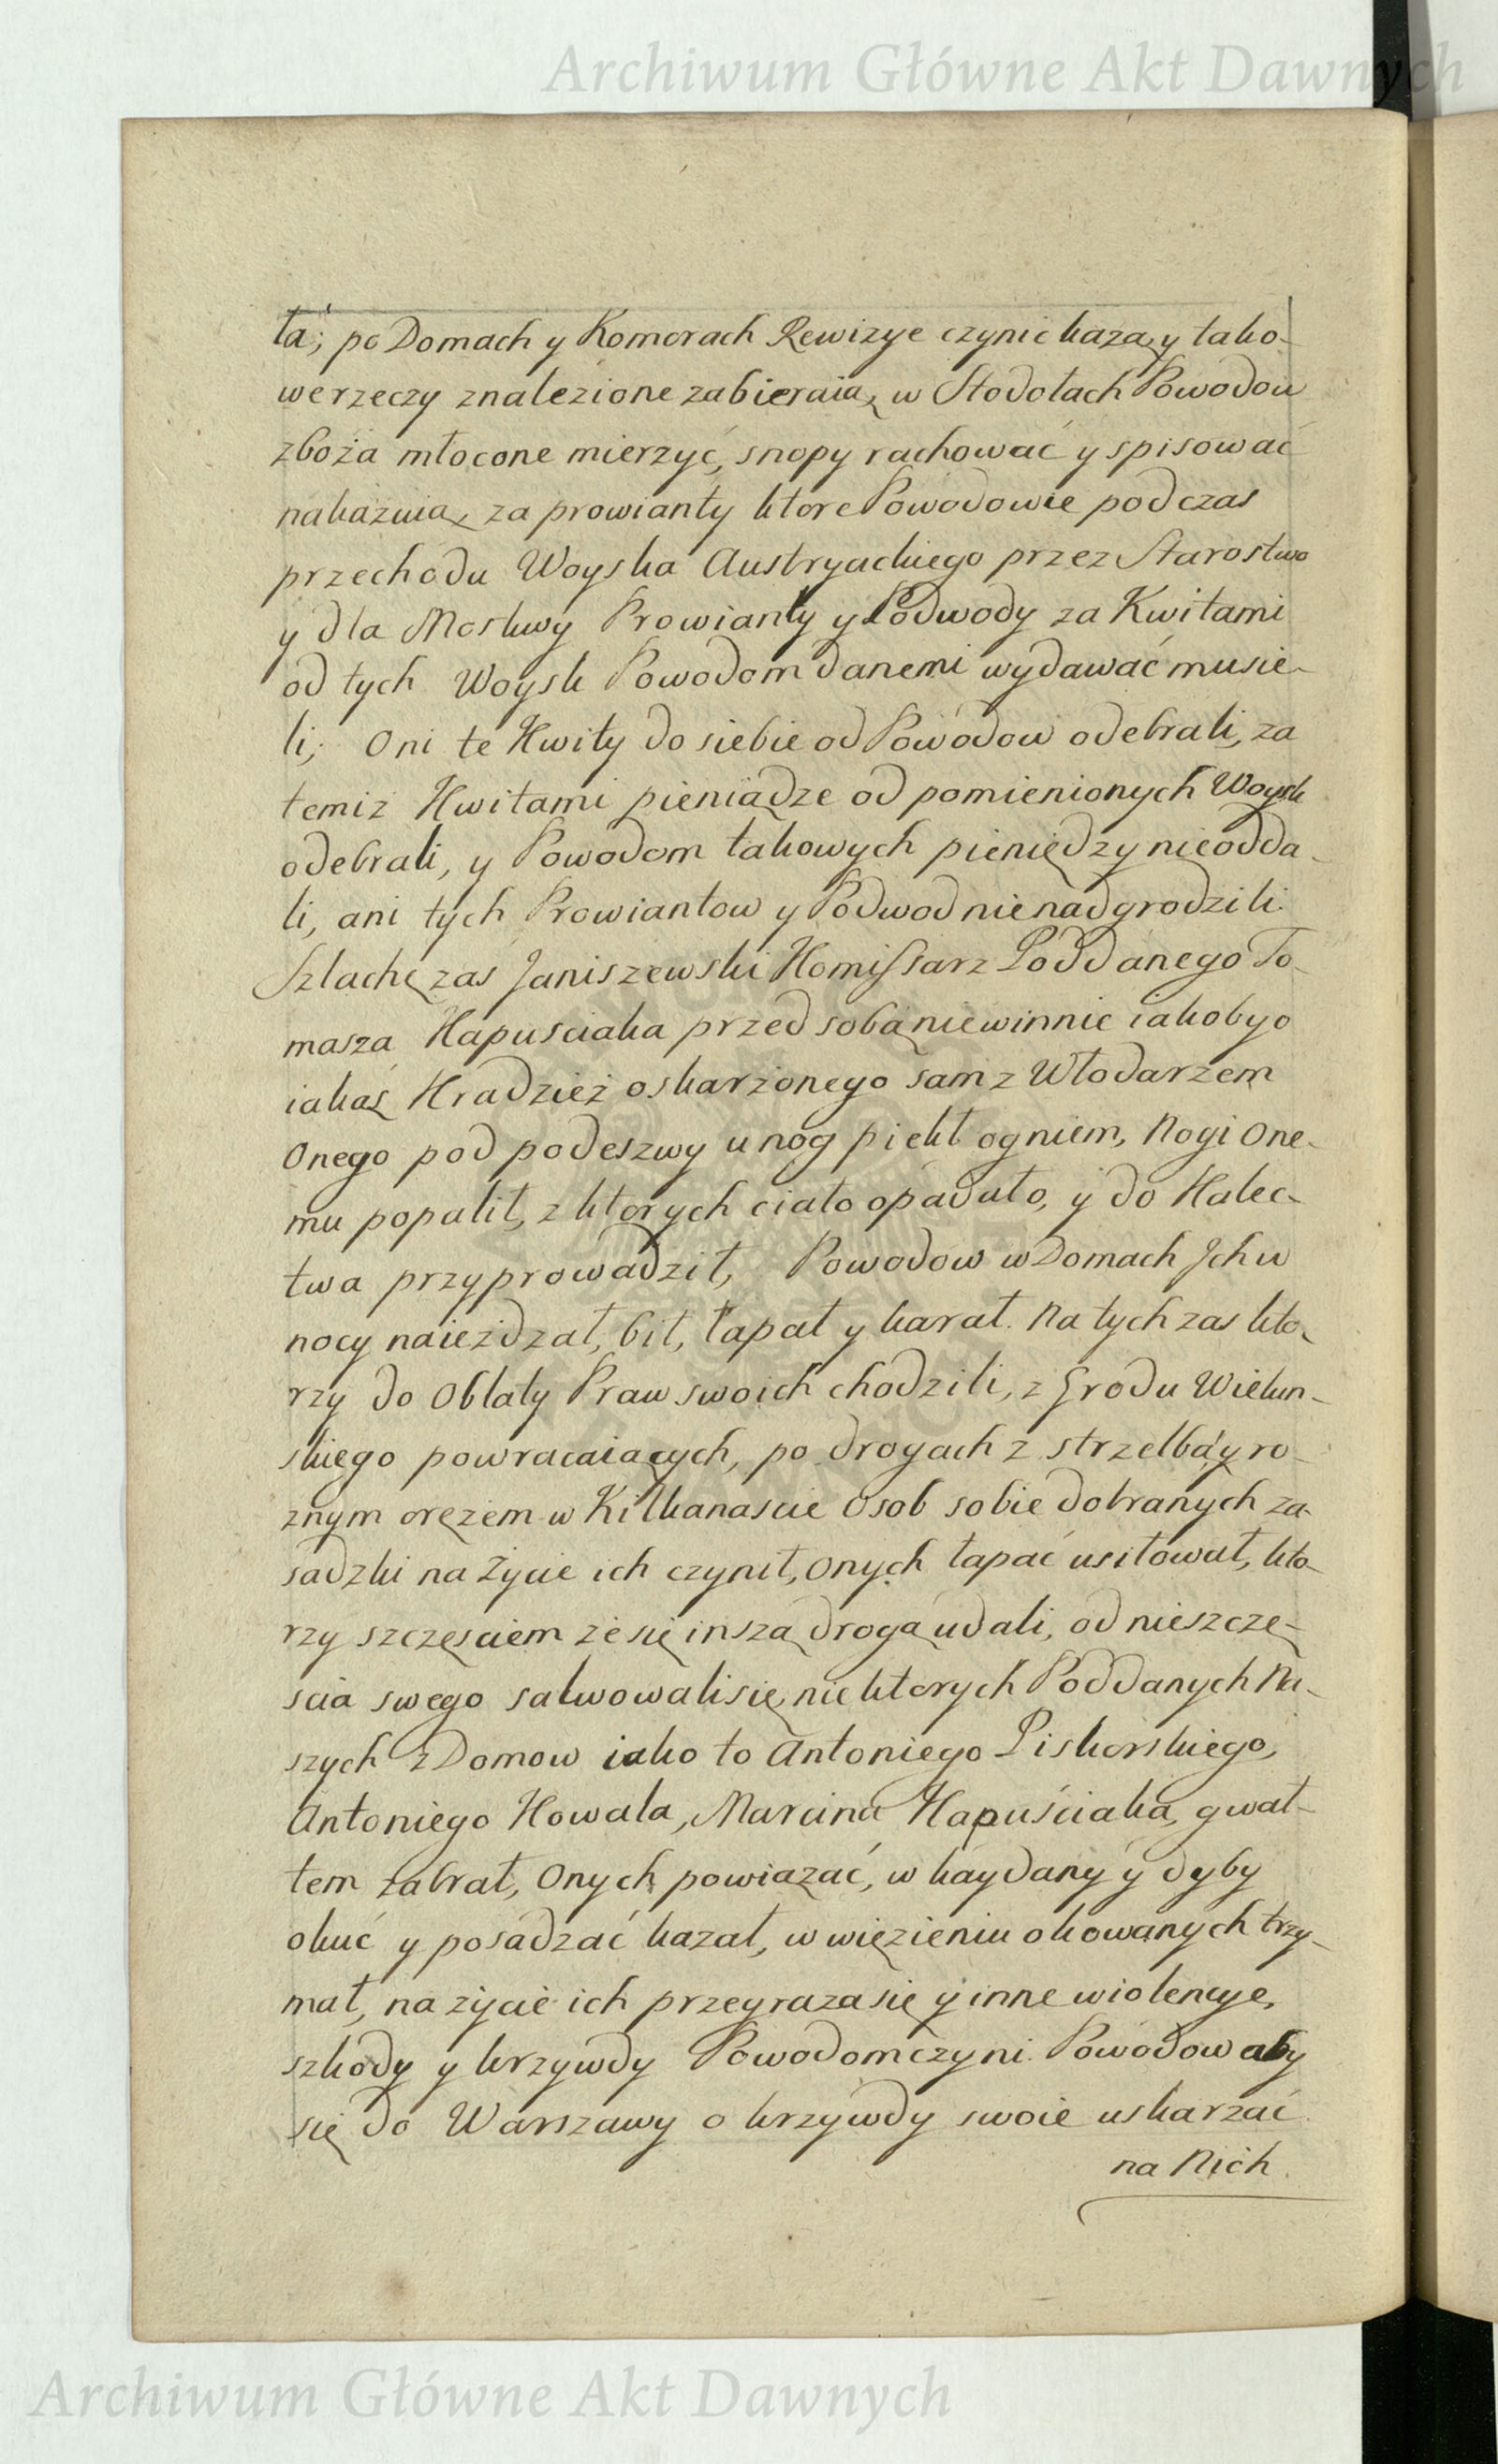 Archiwum Główne Akt Dawnych
ła; po Domach y Komorach Rewizye czynić każą, y tako-
we rzeczy znalezione zabieraią, w Stodołach Powodow
zboża młocone mierzyć, snopy rachować y spisować
nakazuią, za prowianty ktore Powodowie podczas
przechodu Woyska Austryackiego przez Starostwo
y dla Moskwy Prowianty y Podwody za Kwitami
od tych Woysk Powodom danemi wydawać musie-
li; Oni te Kwity do siebie od Powodow odebrali, za
temiż Kwitami pieniądze od pomienionych Woysk
odebrali, y Powodom takowych pieniędzy nieodda-
li, ani tych Prowiantow y Podwod nienadgrodzili.
Szlachę zas Janiszewski Komissarz Poddanego To-
masza Kapusciaka przed sobą niewinnie iakoby o
iakąs Kradzież oskarżonego sam z Włodarzem
Onego pod podeszwy u nog piekł ogniem, Nogi One-
mu popalił, z ktorych ciało opadało, y do Kalec-
twa przyprowadził, Powodow w Domach Jch w
nocy naieżdzał, bił, łapał y karał. Na tych zas kto-
rzy do Oblaty Praw swoich chodzili, z Grodu Wielun-
skiego powracaiących, po drogach z strzelbą y ro-
znym orężem w Kilkanascie Osob sobie dobranych za-
sadzki na życie ich czynił, Onych łapać usiłował, kto-
rzy szczęsciem że się inszą drogą udali, od nieszczę-
scia swego salwowali się, niektorych Poddanych Na-
szych z Domow iako to Antoniego Piskorskiego,
Antoniego Kowala, Marcina Kapuściaka, gwał-
tem zabrał, Onych powiązać, w kaydany y dyby
okuć y posadzać kazał, w więzieniu okowanych trzy-
mał, na życie ich przegraza się y inne wiolencye,
szkody y krzywdy Powodom czyni. Powodow aby
się do Warszawy o krzywdy swoie uskarzać
na Nich
Archiwum Główne Akt Dawnych